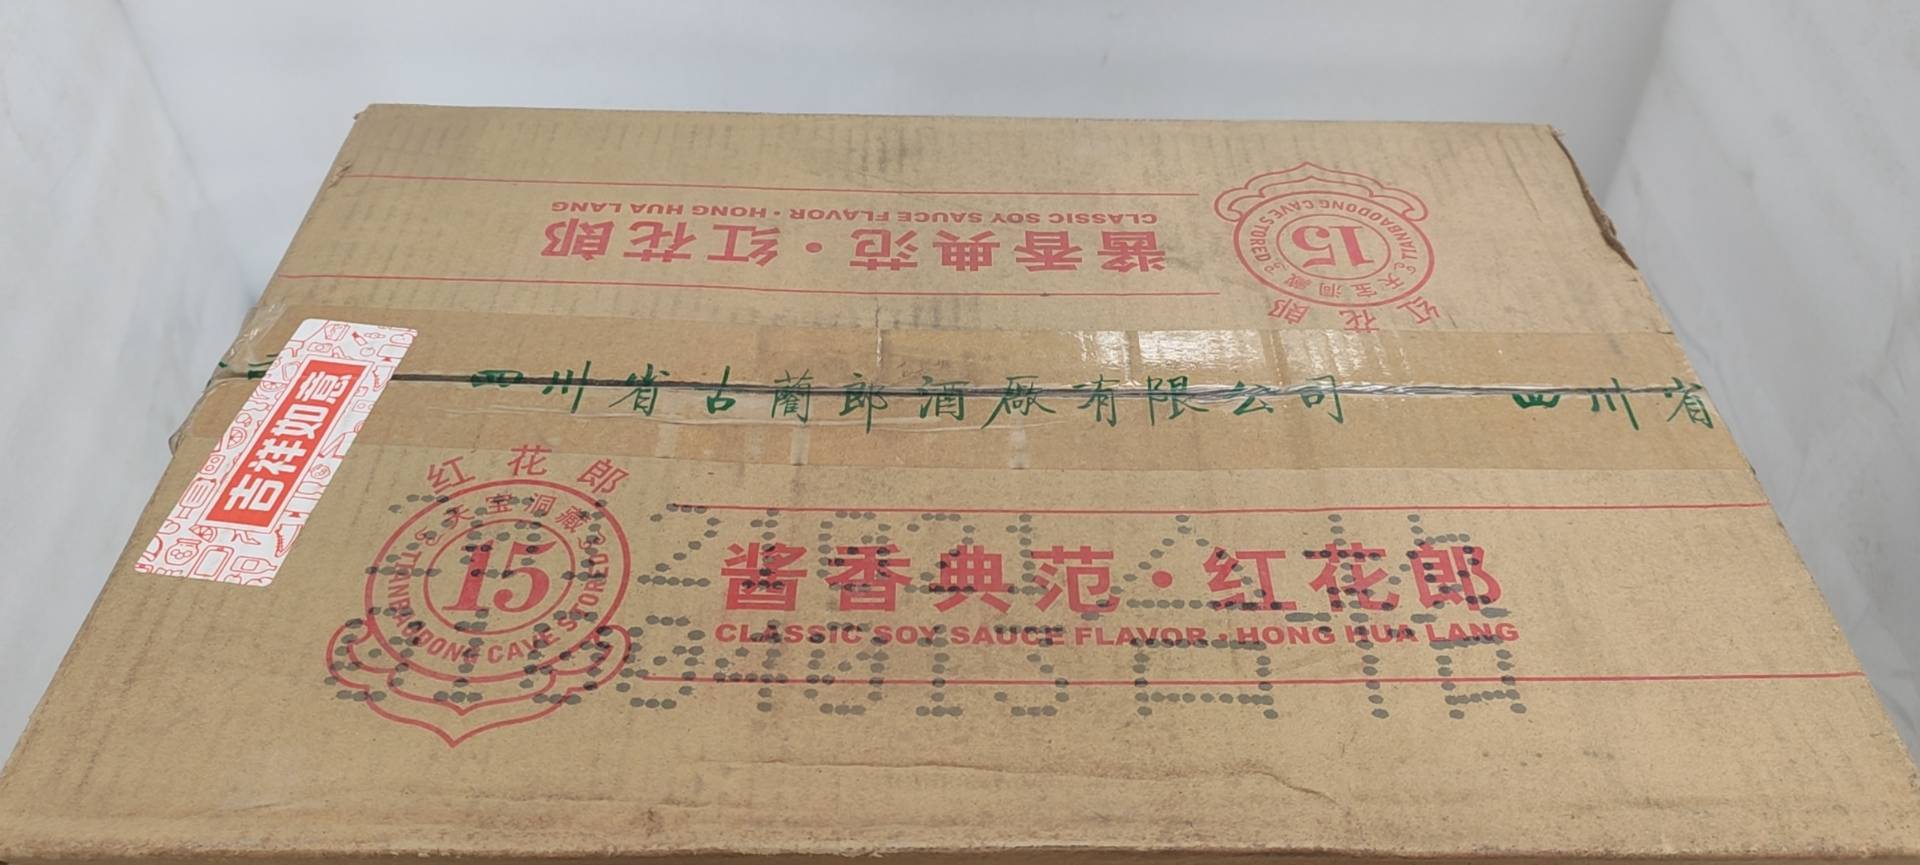 CLASSIC SOY SAUCE FLAVOR · HONG HUA LANG
酱香典范·红花郎
TIANBAODONG CAVE STORED
15
天宝洞藏
红花郎
四川省古蔺郎酒厂有限公司 四川省
吉祥如意
红花郎
天宝洞藏
15
TIANBAODONG CAVE STORED
酱香典范·红花郎
CLASSIC SOY SAUCE FLAVOR · HONG HUA LANG